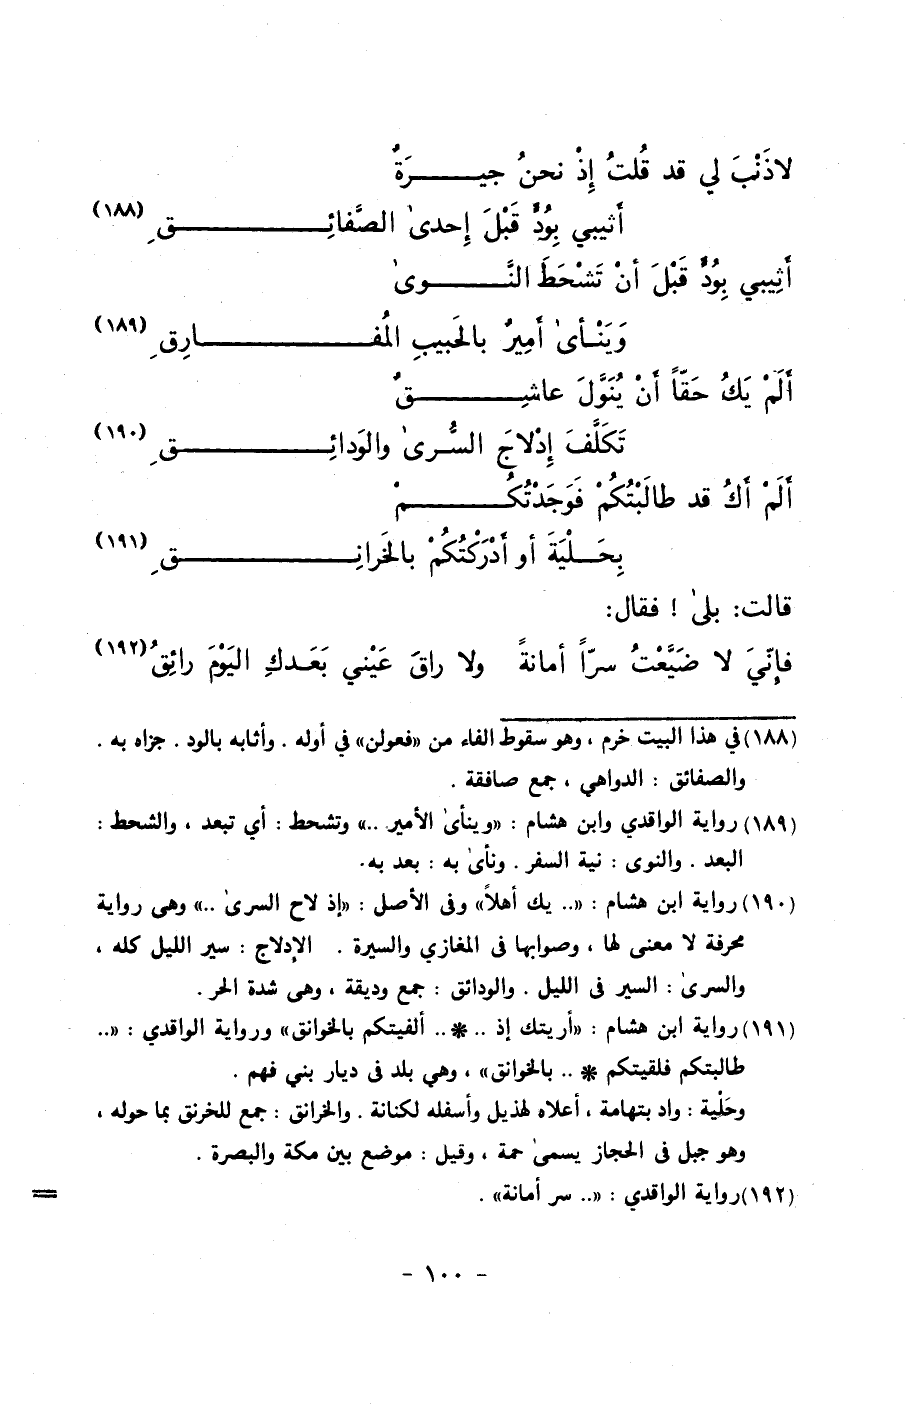 لاذَنْبَ لي قد قُلتُ إِذْ نحنُ جيـــــرَةٌ
أثيبي بِوُدٍّ قَبْلَ إحدىٰ الصَّفائِـــــــــــقِ (١٨٨)
أَثِيبي بِوُدٍّ قَبْلَ أنْ تَشْحَطَ النَّـــــوىٰ
وَيَنْـأىٰ أَمِيرٌ بالحَبيبِ المُفـــــــــــارِقِ (١٨٩)
أَلَمْ يَكُ حَقّاً أَنْ يُنَوَّلَ عاشِـــــــــقٌ
تَكَلَّفَ إِدْلاجَ السُّـرىٰ والوَدائِـــــــــــقِ (١٩٠)
أَلَمْ أَكُ قد طالَبْتُكُمْ فَوَجَدْتُكُـــــــمْ
بِحَـلْيَةَ أو أَدْرَكْتُكُمْ بالخَرانِـــــــــــقِ (١٩١)
قالت: بلىٰ ! فقال:
فإنّيَ لا ضَيَّعْتُ سرّاً أمانةً ولا راقَ عَيْني بَعَـدكِ اليَوْمَ رائِقُ (١٩٢)
(١٨٨) في هذا البيت خرم ، وهو سقوط الفاء من «فعولن» في أوله . وأثابه بالود . جزاه به .
والصفائق : الدواهي ، جمع صافقة .
(١٨٩) رواية الواقدي وابن هشام : «وينأىٰ الأمير ..» وتشحط : أي تبعد ، والشحط :
البعد . والنوى : نية السفر . ونأىٰ به : بعد به.
(١٩٠) رواية ابن هشام : «.. يك أهلاً» وفى الأصل : «إذ لاح السرىٰ ..» وهى رواية
محرفة لا معنى لها ، وصوابها فى المغازي والسيرة . الإدلاج : سير الليل كله ،
والسرىٰ : السير فى الليل . والودائق : جمع وديقة ، وهى شدة الحر .
(١٩١) رواية ابن هشام : «أريتك إذ .. * .. ألفيتكم بالخوانق» ورواية الواقدي : «..
طالبتكم فلقيتكم * .. بالخوانق» ، وهي بلد فى ديار بني فهم .
وحَلْية : واد بتهامة ، أعلاه لهذيل وأسفله لكنانة . والخرانق : جمع للخرنق بما حوله ،
وهو جبل فى الحجاز يسمىٰ حمة ، وقيل : موضع بين مكة والبصرة .
(١٩٢) رواية الواقدي : «.. سر أمانة» . =
- ١٠٠ -